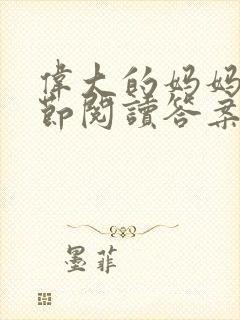 偉大的妈妈
節閱讀答案
墨菲